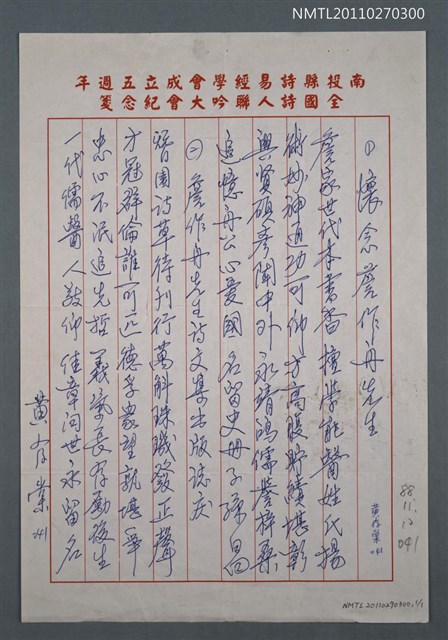 NMTL20110270300
南投縣詩易經學會成立五週年
全國詩人聯吟大會紀念箋
(1) 懷念詹作舟先生
詹家世代本書香 擅學能醫姓氏揚
術妙神通功可仰 才高股貯績堪彰
興賢碩彥聞中外 永靖鴻儒譽梓桑
追憶舟公心愛國 名留史册子孫昌
(二) 詹作舟先生詩文集出版誌慶
晉園詩草待刊行 萬斛珠璣發正聲
才冠群倫誰可匹 德孚眾望孰堪爭
忠心不泯追先哲 義氣長存勵後生
一代儒醫人敬仰 佳章问世永留名
黃 棠
88.
11.
12
041
NMTL20110270300,1/1